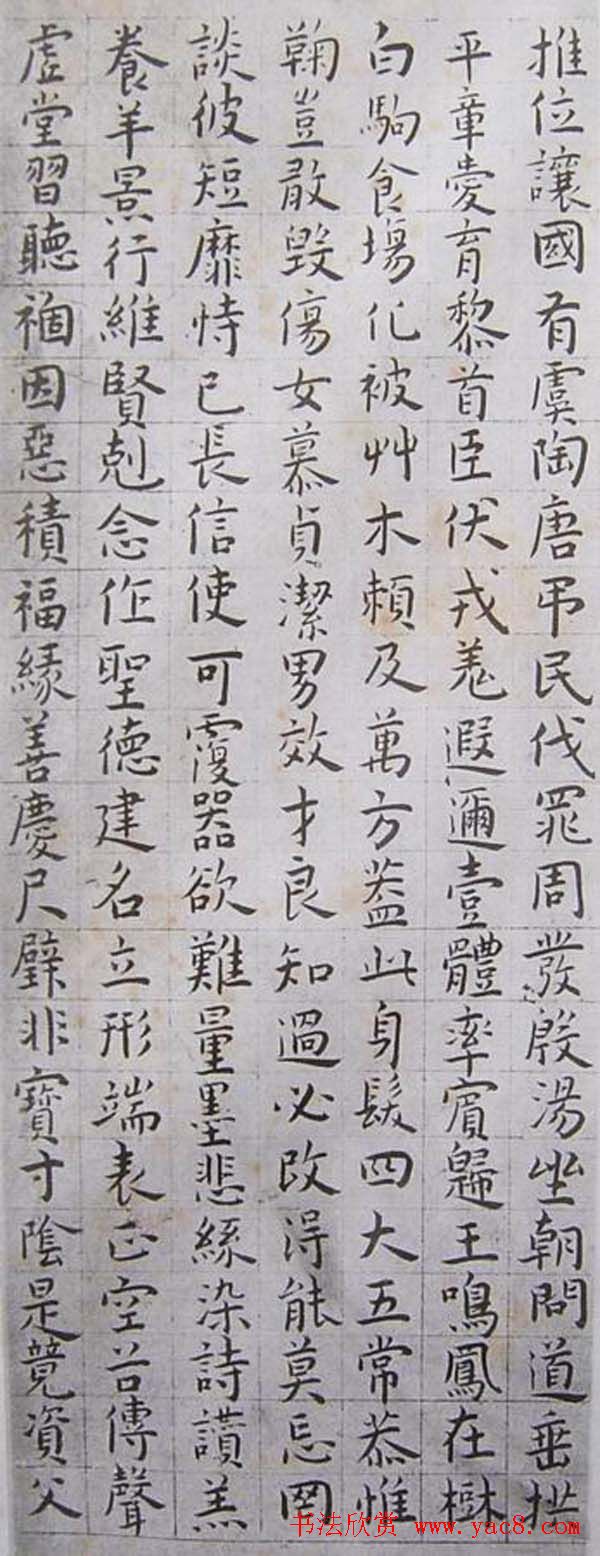 推位讓國有虞陶唐弔民伐罪周發殷湯坐朝問道垂拱
平章愛育黎首臣伏戎羌遐邇壹體率賓歸王鳴鳳在樹
白駒食場化被艸木賴及萬方蓋此身髮四大五常恭惟
鞠豈敢毀傷女慕貞潔男效才良知過必改得能莫忘罔
談彼短靡恃己長信使可覆器欲難量墨悲絲染詩讚羔
養羊景行維賢剋念作聖德建名立形端表正空谷傳聲
虛堂習聽禍因惡積福緣善慶尺璧非寶寸陰是競資父
书法欣赏 www.yac8.com